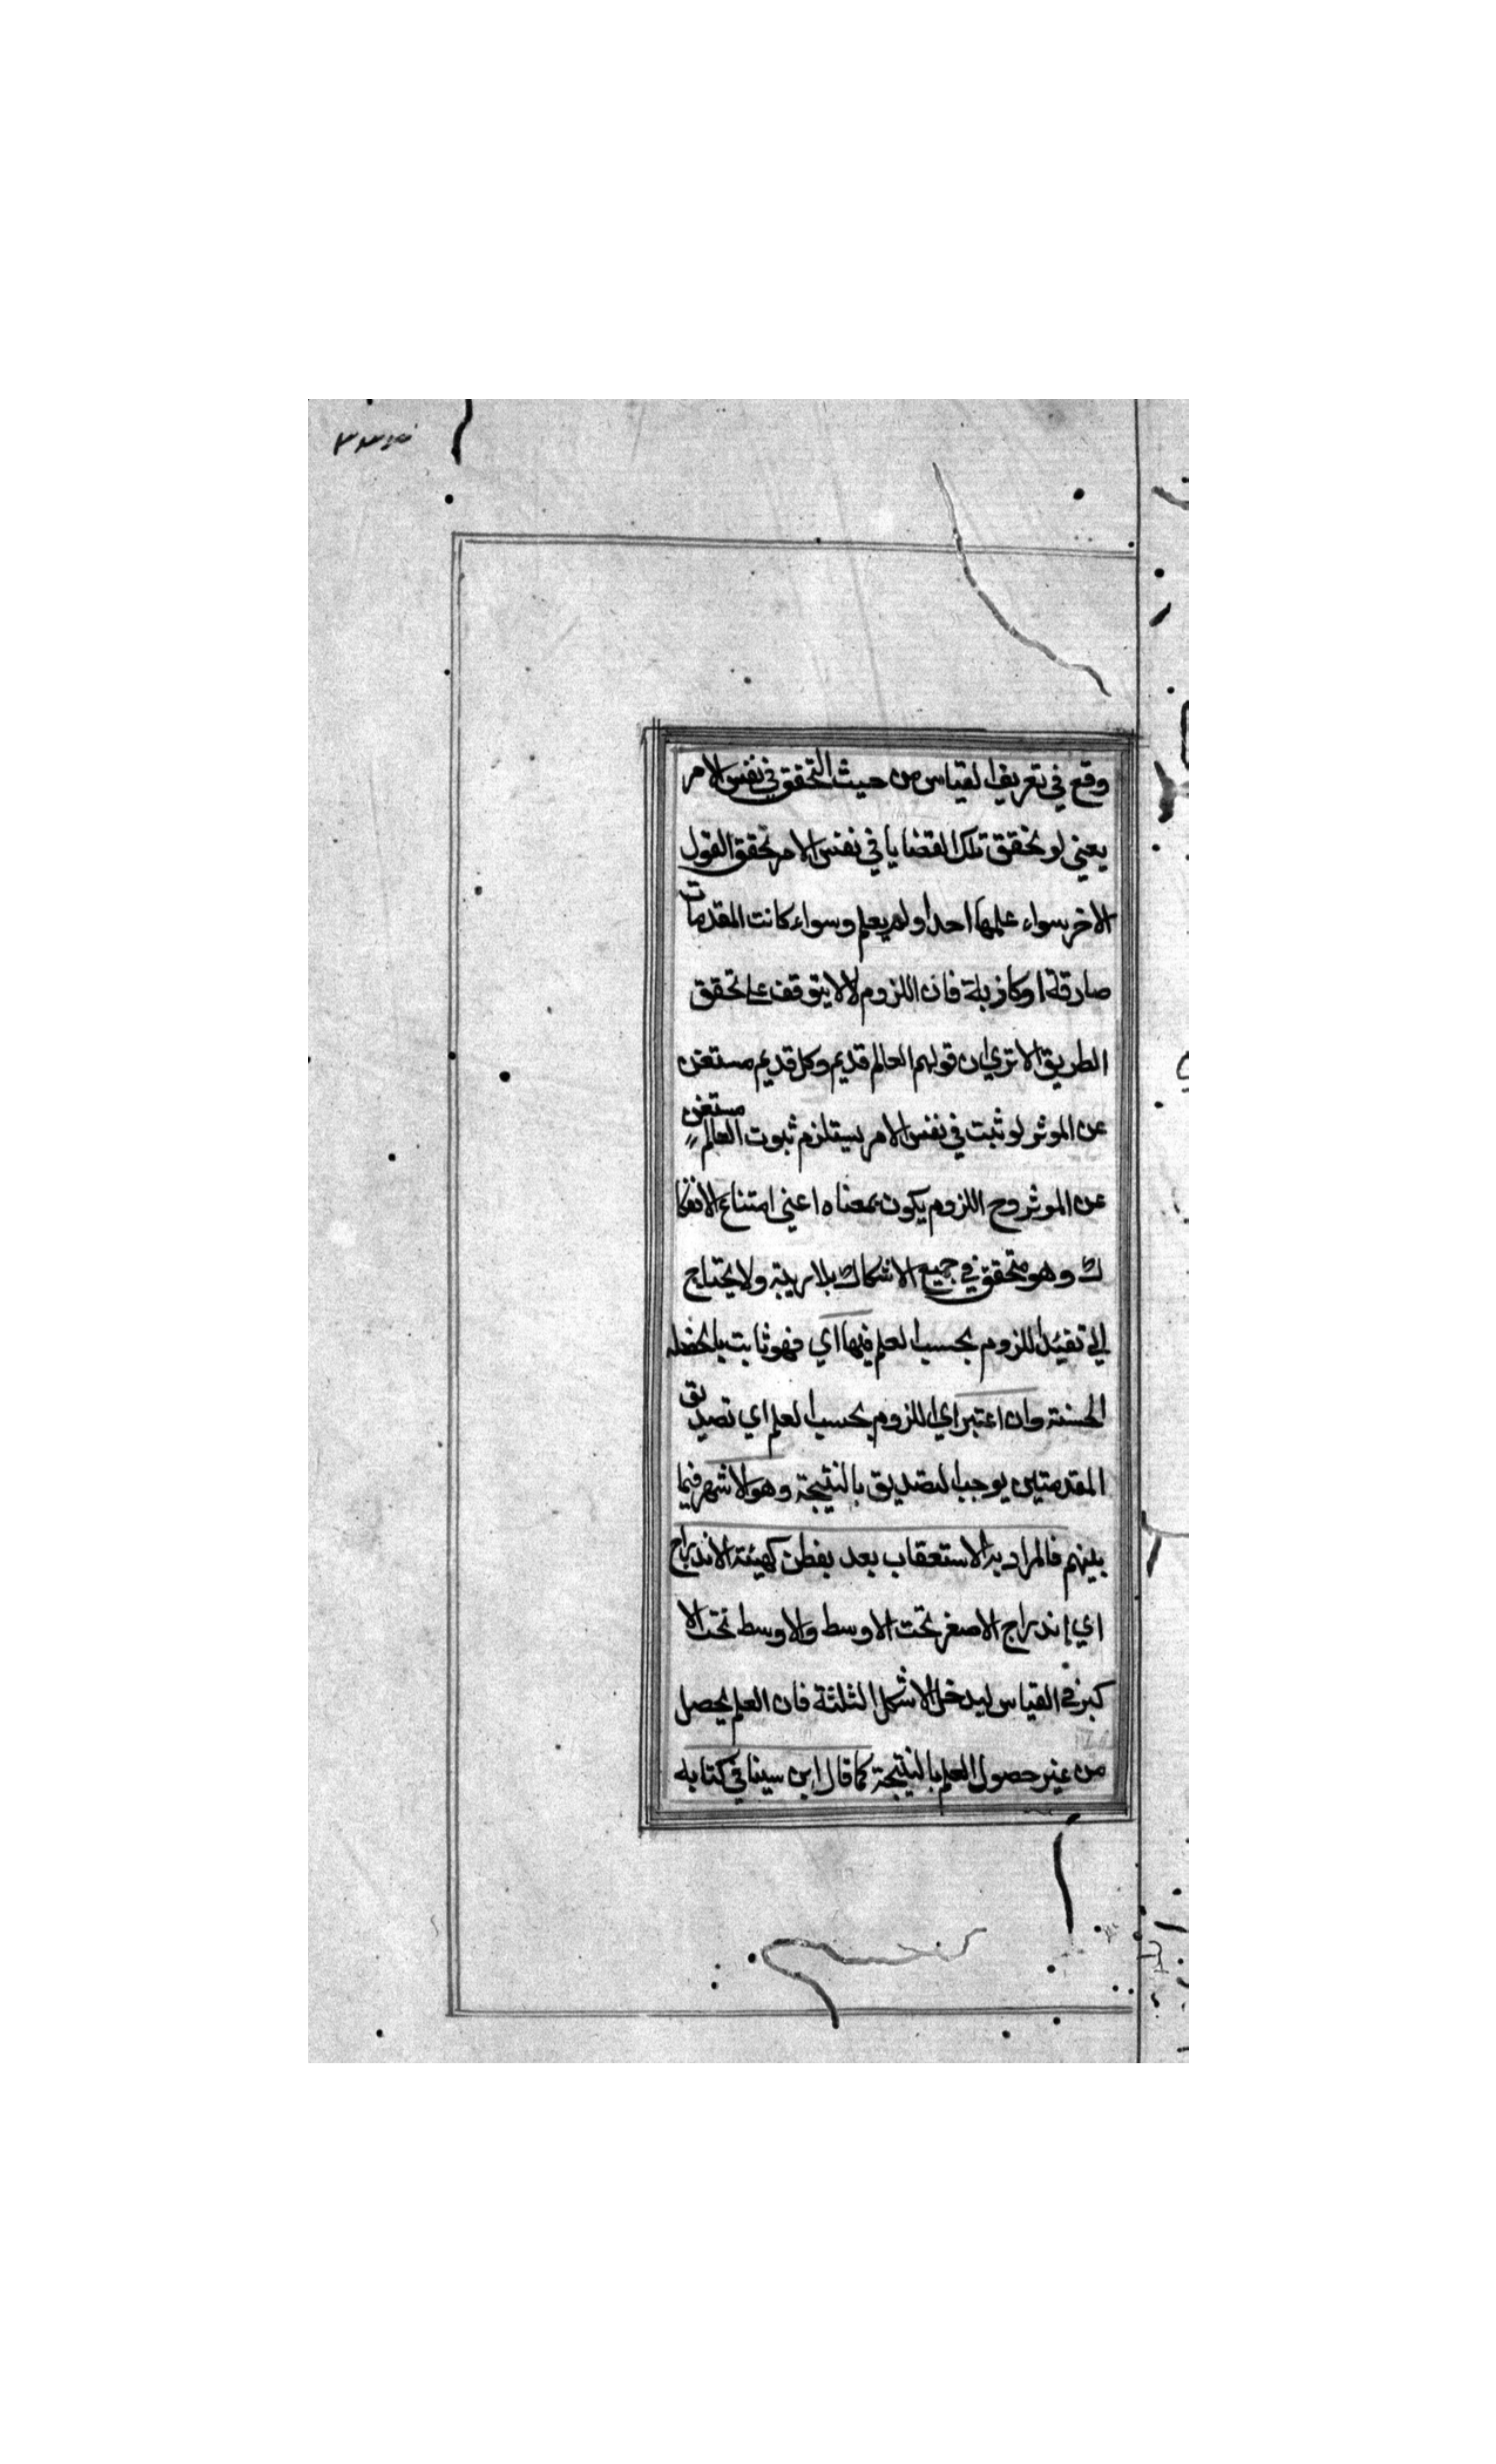 وقع في تعريف القياس من حيث التحقق في نفس الامر
يعني لو تحقق تلك القضايا في نفس الامر تحقق القول
الاخر سواء علمها احد او لم يعلم وسواء كانت المقدمات
صادقة او كاذبة فان اللزوم لا لا يتوقف على تحقق
الطريق الا تري ان قولهم العالم قديم وكل قديم مستغن
عن الموثر لو ثبت في نفس الامر يستلزم ثبوت العالم مستغن
عن الموثر وح اللزوم يكون بمعناه اعني امتناع الانفكا
ك وهو متحقق في جميع الاشكال بلا ريبة ولا يحتاج
الي تقيد اللزوم بحسب العلم فيها اي فهو ثابت
الحسنة وان اعتبر اي اللزوم بحسب العلم اي تصديق
المقدمتين يوجب التصديق بالنتيجة وهو الاشهر فيما
بينهم فالمراد به الاستعقاب بعد بفطن كهيئة الاندراج
اي اندراج الاصغر تحت الاوسط والاوسط تحت الا
كبر في القياس ليدخل الاشكل الثلثة فان العلم يحصل
من غير حصول العلم بالنتيجة كما قال ابن سينا في كتابه